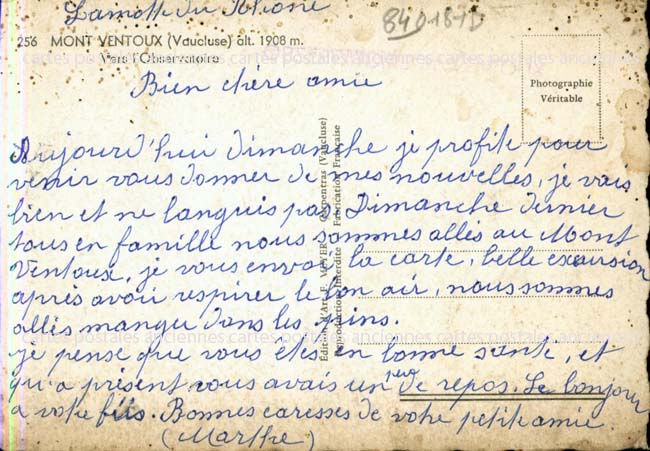 Lamotte du Rhône
84018-D
256 MONT VENTOUX (Vaucluse) alt. 1908 m.
Vers l'Observatoire
cartes postales anciennes cartes postales anciennes cartes postales
Bien chère amie
Photographie
Véritable
Aujourd'hui dimanche je profite pour
venir vous donner de mes nouvelles, je vais
bien et ne languis pas. Dimanche dernier
tous en famille nous sommes allés au Mont
Ventoux, je vous envoi la carte, belle excursion
après avoir respirer le bon air, nous sommes
allés manger dans les pins.
cartes postales anciennes cartes postales anciennes cartes postales
je pense que vous êtes en bonne santé, et
qu'a présent vous avais un peu de repos. Le bonjour
a votre fils. Bonnes caresses de votre petite amie.
(Marthe)
Edition d'Art F. Carpentras (Vaucluse)
Reproduction Interdite Fabrication Française